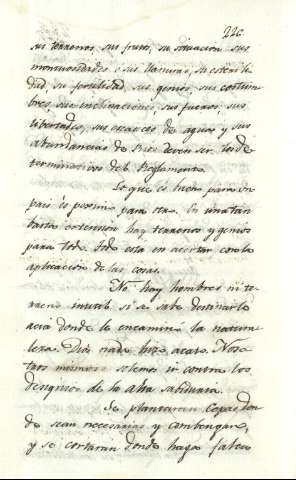 220
sus terrenos, sus frutos, su situacion sus
montuosidades ó sus llanuras, su esterili
dad su fertilidad, sus genios, sus costum
bres, sus inclinaciones, sus fueros, sus
libertades, sus escaces de aguas y sus
abundancias de Rios deven ser los de
terminativos del Reglamento.
Lo que es bueno para un
pais es pesimo para otro. En una tan
basta extension hay terrenos y genios
para todo. Todo esta en acertar con la
aplicacion de las cosas.
No hay hombres ni te
rreno inutil si se sabe destinarlo
acia donde le encamina la natura-
leza. Dios nada hizo acaso. Noso
tros mismos solemos ir contra los
designios de la alta sabiduria.
Se plantaran Cepas don
de sean necesarias y combengan,
y se cortaran donde haga falta